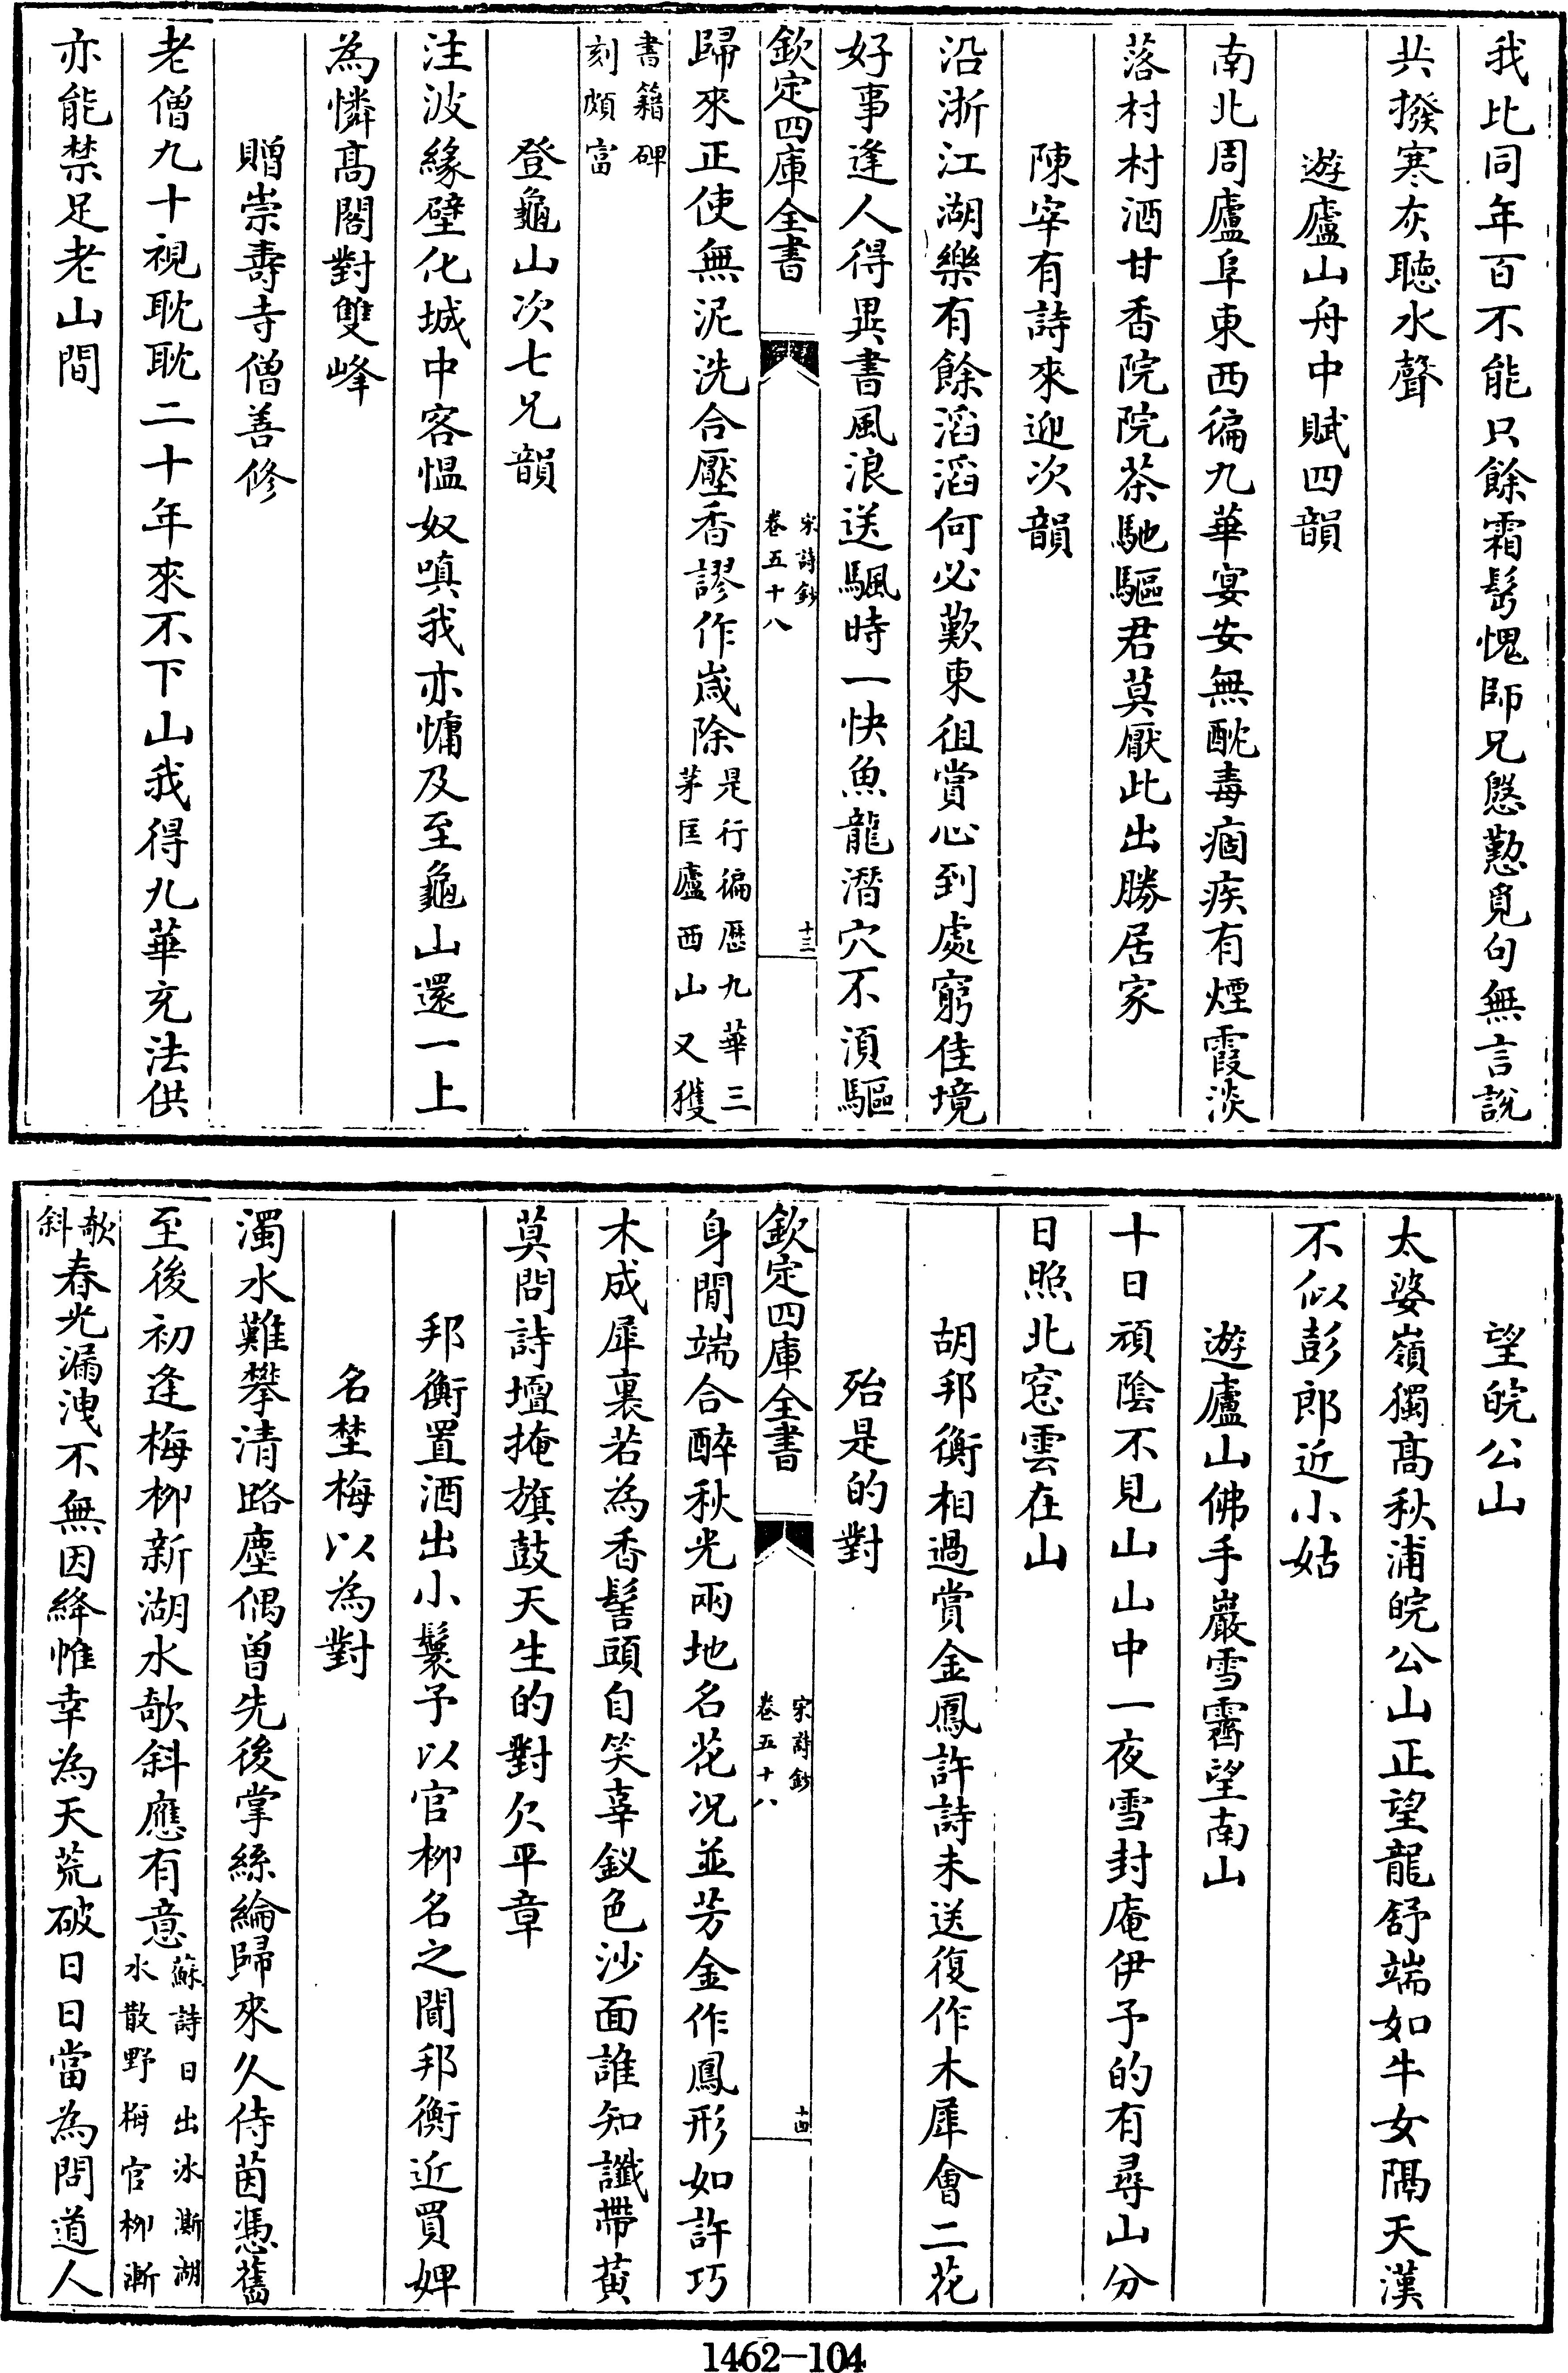 我比同年百不能只餘霜髩愧師兄慇懃覓句無言說
共撥寒灰聴水聲
遊廬山舟中賦四韻
南北周廬阜東西徧九華宴安無酖毒痼疾有煙霞淡
落村村酒甘香院院茶馳驅君莫厭此出勝居家
陳宰有詩來迎次韻
沿浙江湖樂有餘滔滔何必歎東徂賞心到處窮佳境
好事逢人得異書風浪送颿時一快魚龍潛穴不湏驅
欽定四庫全書
宋詩鈔
卷五十八
十三
歸來正使無泥洗合壓香謬作嵗除是行徧歴九華三
茅匡廬西山又獲
書籍碑
刻頗富
登龜山次七兄韻
注波緣壁化城中客愠奴嗔我亦慵及至龜山還一上
為憐髙閣對雙峰
贈崇壽寺僧善修
老僧九十視耽耽二十年來不下山我得九華充法供
亦能禁足老山間
望皖公山
太婆嶺獨髙秋浦皖公山正望龍舒端如牛女隔天漢
不似彭郎近小姑
遊廬山佛手巖雪霽望南山
十日頑陰不見山山中一夜雪封庵伊予的有尋山分
日照北窓雲在山
胡邦衡相過賞金鳳許詩未送復作木犀會二花
殆是的對
欽定四庫全書
宋詩鈔
卷五十八
十四
身閒端合醉秋光兩地名花况並芳金作鳳形如許巧
木成犀裏若為香髻頭自笑辜釵色沙面誰知讖帶黄
莫問詩壇掩旗鼓天生的對欠平章
邦衡置酒出小鬟予以官柳名之聞邦衡近買婢
名埜梅以為對
濁水難攀清路塵偶曽先後掌絲綸歸來久侍茵馮舊
至後初逢梅柳新湖水欹斜應有意蘇詩日出冰澌湖
水散野梅官柳漸
欹
斜春光漏洩不無因絳帷幸為天荒破日日當為問道人
1462-104